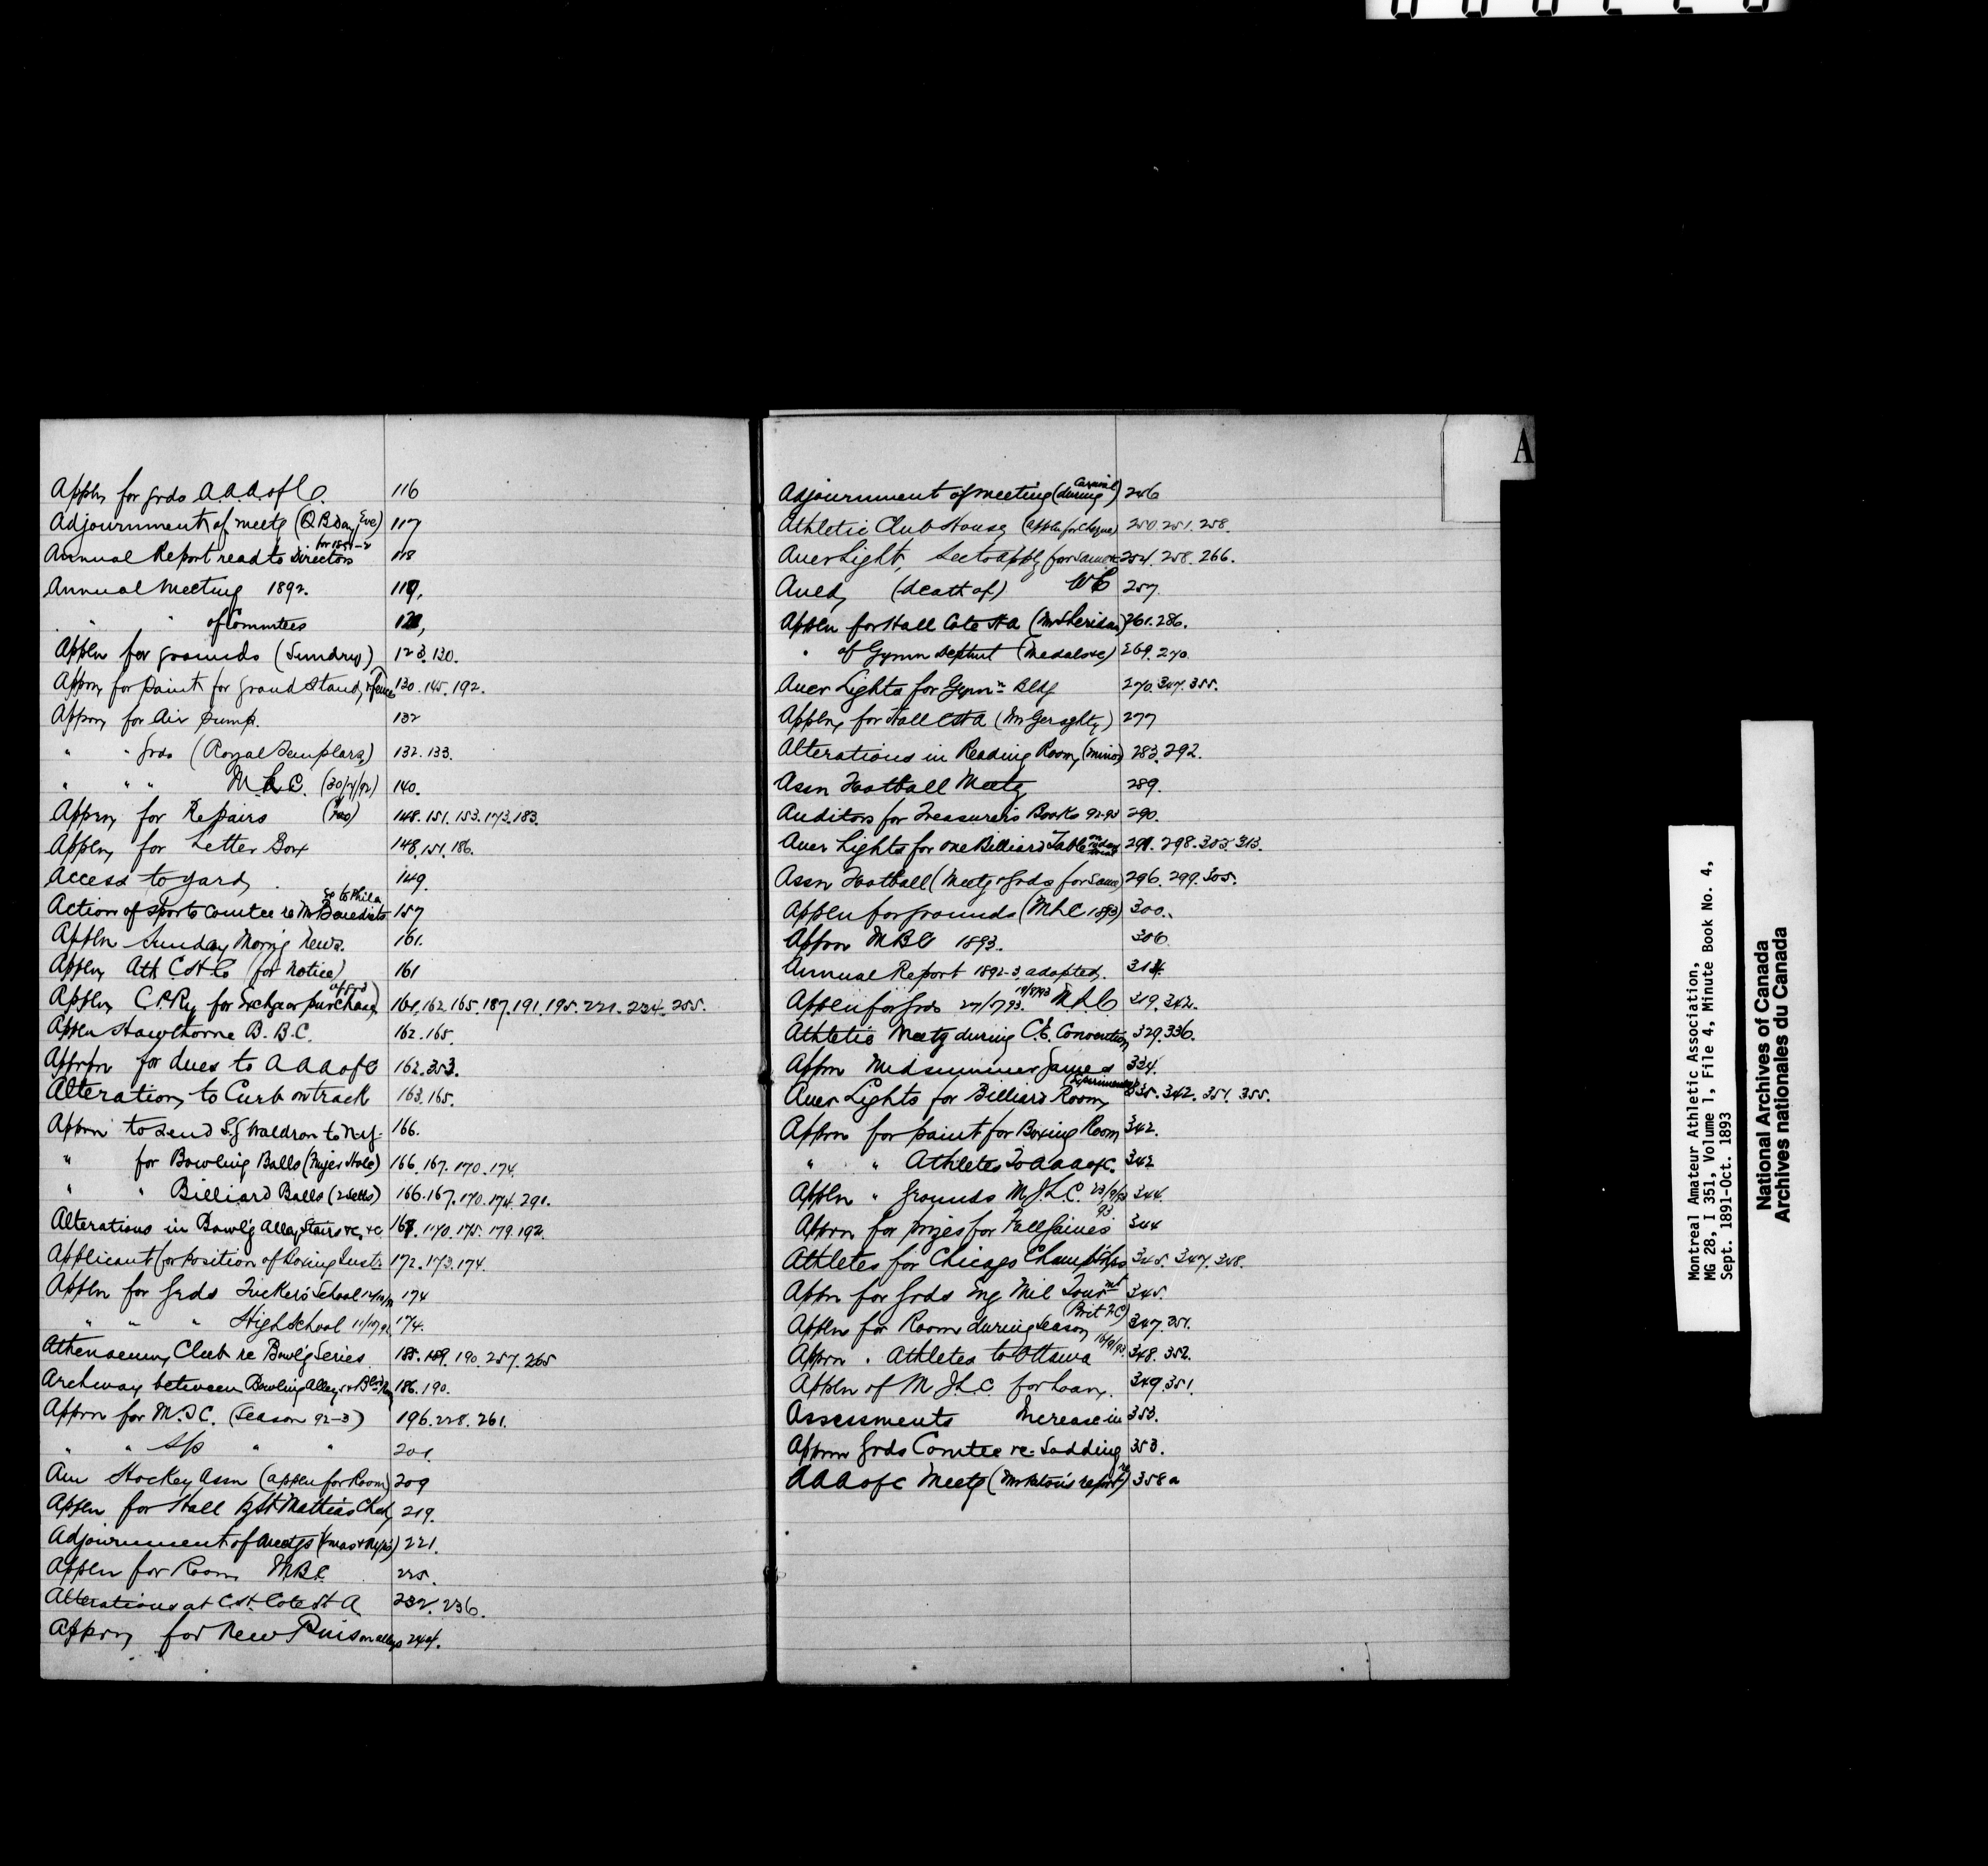 Appln for grds A.A.A. of C. 116
Adjournment of meetg (Q B Day Eve) 117
Annual Report read to Directors for 1891-2 118
Annual Meeting 1892. 119,
" " of Commtees
Appln for grounds (Sundry) 123. 130.
Apprn for paint for Grand Stand & fence 130. 145. 192.
Apprn for Air Pump. 132
" " Grds (Royal Templars) 132. 133.
" " " M.L.C. (30/7/92) 140.
Apprn for Repairs 148. 151. 153. 173. 183.
Appln for Letter Box 148. 151. 186.
Access to yard 149.
Action of Sports Comtee re Mr Benedicts 157
Appln Sunday Morng News. 161.
Appln Ath C.H. Co (for Notice) 161
Appln C.P.Ry for Exchge or purchase of grd 161, 162. 165. 187. 191. 195. 221. 234. 255.
Appln Hawthorne B.B.C. 162. 165.
Apprn for dues to A A A of C 162. 353.
Alteration to Curb on track 163. 165.
Apprn to send S.G Waldron to N.Y. 166.
" for Bowling Balls 166. 167. 170. 174.
" " Billiard Balls (2 Setts) 166. 167. 170. 174. 291.
Alterations in Bowl'g Alley Stairs &c, &c 168. 170. 175. 179. 192.
Applicant for Position of Boxing Instr 172. 173. 174.
Appln for Grds Tucker's School 174
" " " High School 174.
Athenaeum Club re Bowl'g Series 188. 189. 190. 257. 265
Archway between Bowling Alleys & Bld Rm 186. 190.
Apprn for M.S.C. (Season 92-3) 196. 228. 261.
" " " " 201.
Am Hockey Assn (appln for Room) 209
Appln for Hall by St Matthias Chch 219.
Adjournment of Meetgs (Xmas & N Yrs) 221.
Appln for Room M.B.C. 225.
Alterations at C.H. Cote St A. 232. 236.
Apprn for New Pins on alleys 244.
A
Adjournment of Meeting (during Carnival) 246
Athletic Club House (appln for Cheque) 250. 251. 258.
Auer Light, Sec to apply for same 254. 258. 266.
Auld, (death of) W C 257.
Appln for Hall Cote St A (Mr Sheridan) 261. 286.
" of Gymn Deptmt (Medals &c) 269. 270.
Auer Lights for Gymn Bldg 270. 347. 355.
Appln for Hall C St A (Mr Geraghty) 277
Alterations in Reading Room (minor) 283. 292.
Assn Football Meetg 289.
Auditors for Treasurer's Books 92-93 290.
Auer Lights for one Billiard Table 291. 298. 305. 313.
Assn Football (Meetg & Grds for Same) 296. 299. 305.
Appln for grounds (M.L.C 1893) 300.
Apprn M.B.C 1893. 306
Annual Report 1892-3 adopted. 314.
Appln for Grds 27/5/93. M.L.C 319. 342.
Athletic Meetg during C.E. Convention 329. 336.
Apprn Midsummer Games 334.
Auer Lights for Billiard Room (experimental) 335. 342. 351. 355.
Apprn for paint for Boxing Room 342.
" " Athletes to A a a of C. 342
Appln " Grounds M.J.L.C. 23/9/93 344.
Apprn for prizes for Fall Games 93 344
Athletes for Chicago Champships 345. 347. 348.
Appln for Grds Eng Mil Tournmt 345.
Appln for Room during Season (Brit F.C) 347. 351.
Apprn " Athletes to Ottawa 16/9/93. 348. 352.
Appln of M J.L.C. for Loan. 349. 351.
Assessments Increase in 353.
Apprn Grds Comtee re Sodding 353.
A A A of C Meetg (Mr Paton's report re) 358 a
Montreal Amateur Athletic Association,
MG 28, I 351, Volume 1, File 4, Minute Book No. 4,
Sept. 1891-Oct. 1893
National Archives of Canada
Archives nationales du Canada